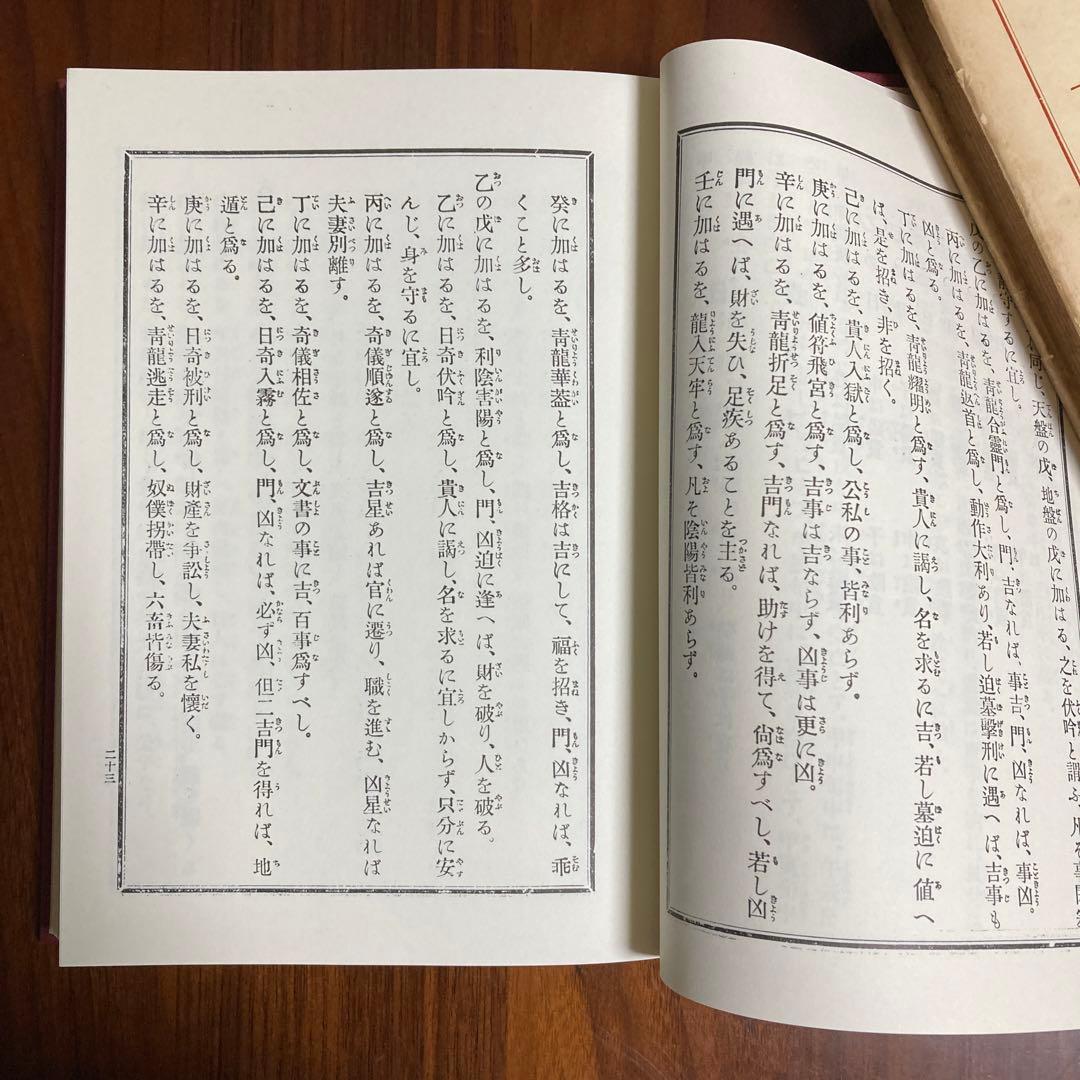 同じ、天盤の戊、地盤の戊に加はる、之を伏吟と謂ふ、凡そ事
守するに宜し。
戊の乙に加はるを、青龍合靈門と爲し、門、吉なれば、事吉、門、凶なれば、事凶。
丙に加はるを、青龍返首と爲し、動作大利あり、若し迫墓擊刑に遇へば、吉事も
凶と爲る。
丁に加はるを、青龍耀明と爲す、貴人に謁し、名を求るに吉、若し墓迫に値へ
ば、是を招き、非を招く。
己に加はるを、貴人入獄と爲し、公私の事、皆利あらず。
庚に加はるを、値符飛宮と爲す、吉事は吉ならず、凶事は更に凶。
辛に加はるを、青龍折足と爲す、吉門なれば、助けを得て、尙爲すべし、若し凶
門に遇へば、財を失ひ、足疾あることを主る。
壬に加はるを、龍入天牢と爲す、凡そ陰陽皆利あらず。
癸に加はるを、靑龍華葢と爲し、吉格は吉にして、福を招き、門、凶なれば、乖
くこと多し。
乙の戊に加はるを、利陰害陽と爲し、門、凶迫に逢へば、財を破り、人を破る。
乙に加はるを、日奇伏吟と爲し、貴人に謁し、名を求るに宜しからず、只分に安
んじ、身を守るに宜し。
丙に加はるを、奇儀順遂と爲し、吉星あれば官に遷り、職を進む、凶星なれば
夫妻別離す。
丁に加はるを、奇儀相佐と爲し、文書の事に吉、百事爲すべし。
己に加はるを、日奇入霧と爲し、門、凶なれば、必ず凶、但二吉門を得れば、地
遁と爲る。
庚に加はるを、日奇被刑と爲し、財產を爭訟し、夫妻私を懷く。
辛に加はるを、靑龍逃走と爲し、奴僕拐帶し、六畜皆傷る。
二十三